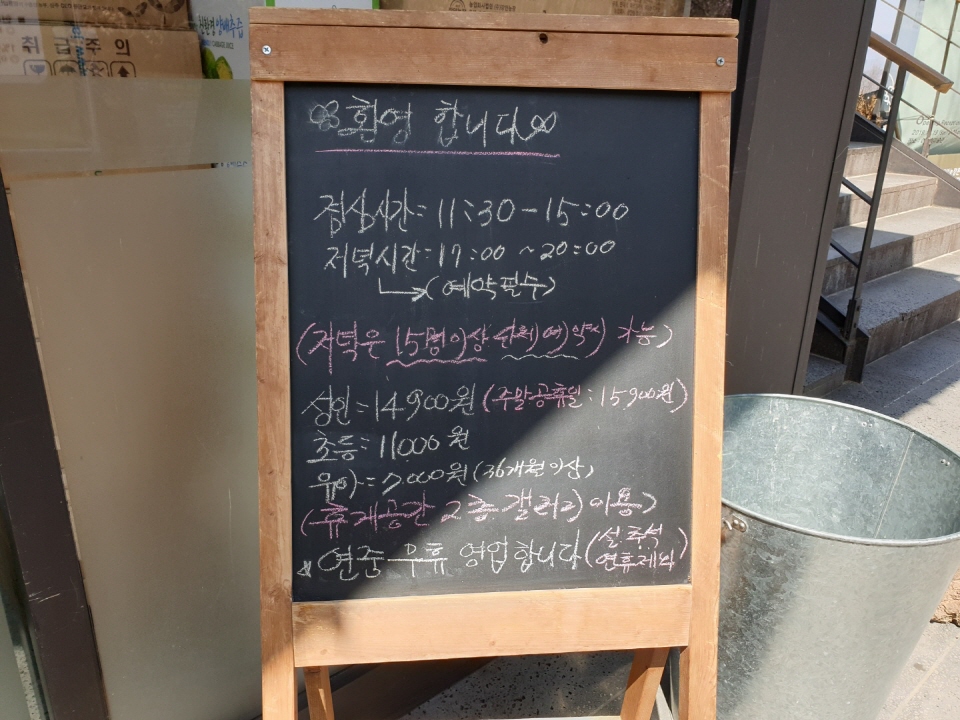 취급주의
친환경 양배추즙
환영 합니다
점심시간: 11:30 - 15:00
저녁시간: 17:00 ~ 20:00
(예약필수)
(저녁은 15명이상 단체예약시 가능)
성인 = 14,900원 (주말공휴일 : 15900원)
초등 = 11,000원
유아 = 7,000원 (36개월이상)
(휴게공간 2층 갤러리 이용)
연중무휴 영업합니다 (설.추석
연휴제외)